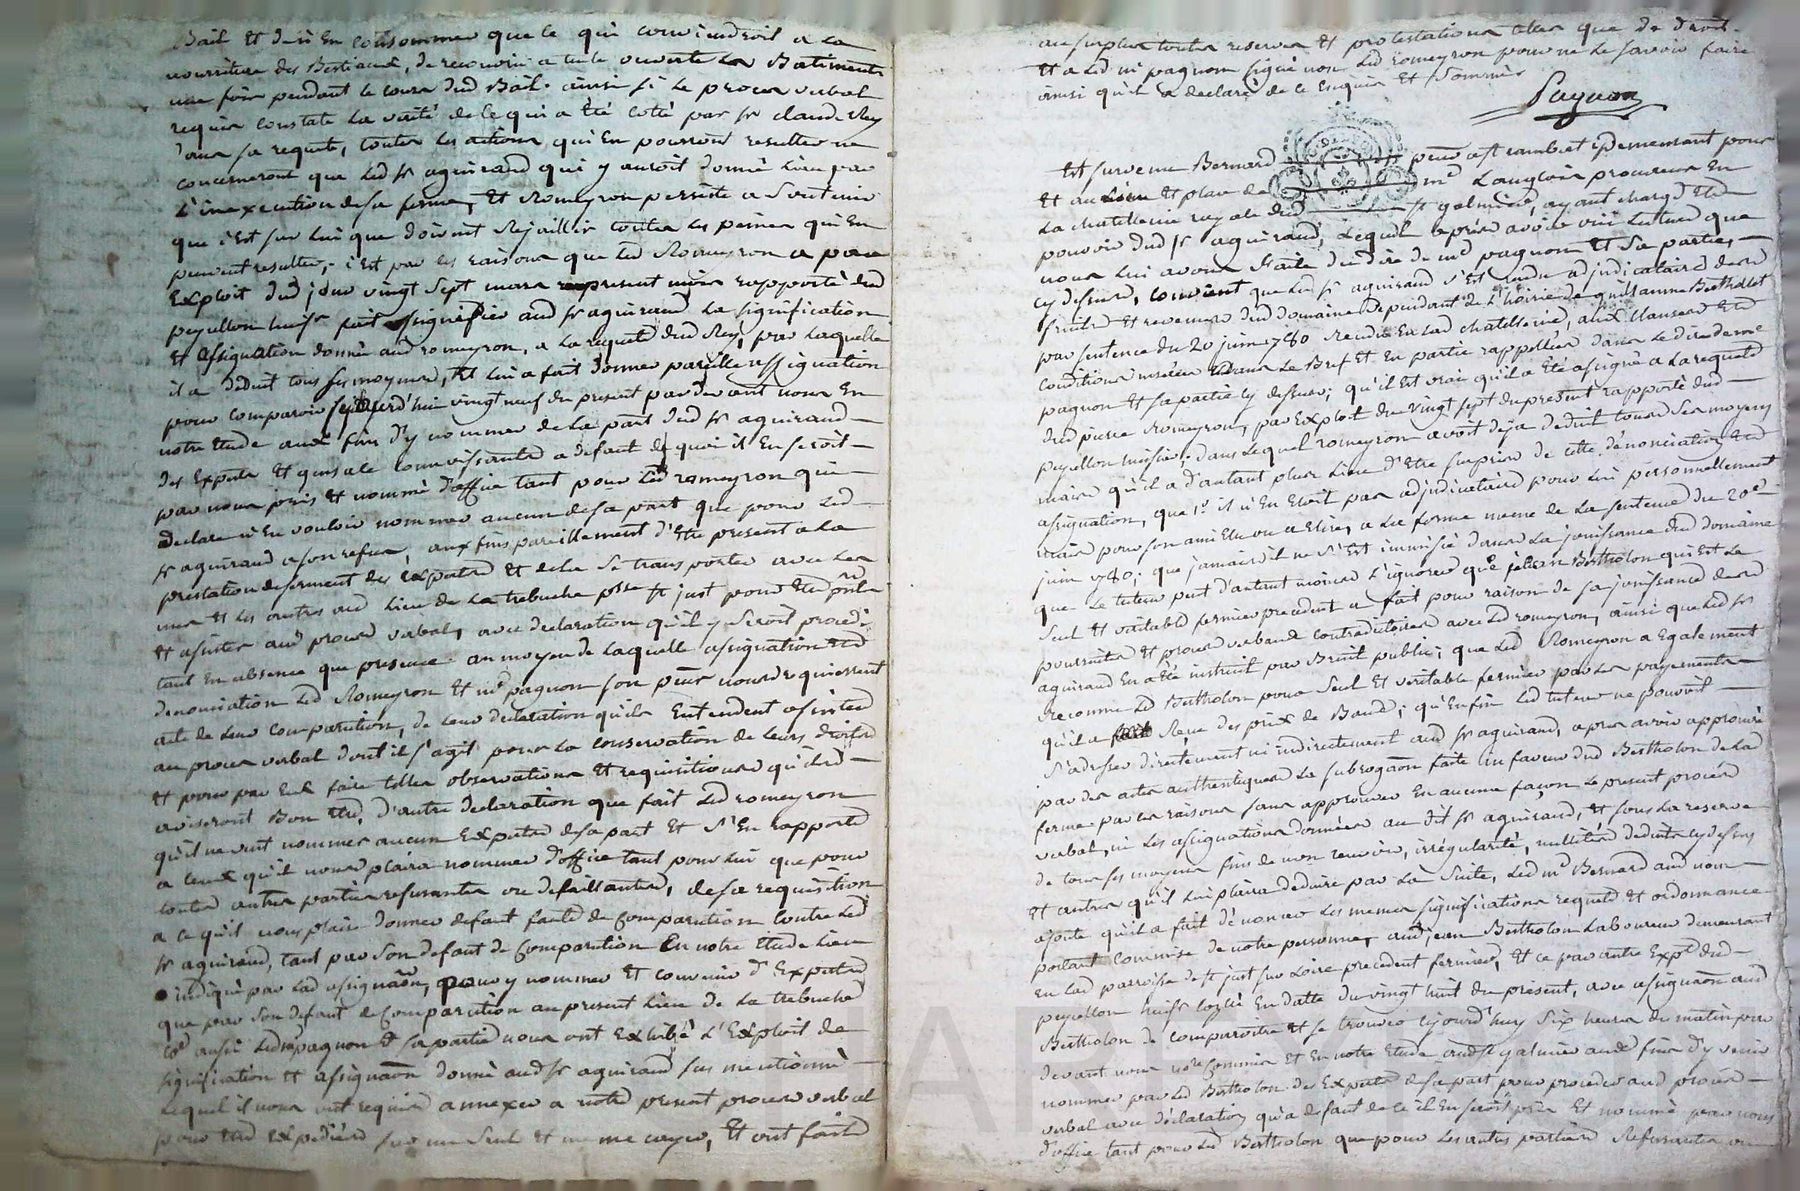 Bail et d'en consommer que ce qui conviendroit a la
nourriture des Bestiaux, de recouvrir a tuile ouverte les Batiments
une fois pendant le cours dud Bail. ainsi si le proces verbal
requis constate la verité de ce qui a été coté par sr claude Rey
dans sa requete, toutes les actions qui en pourront resulter ne
concerneront que led sr aguiraud qui y auroit donné lieu par
l'inexecution de sa ferme, et Romeyron persiste a soutenir
que c'est sur lui que doivent rejaillir toutes les peines qui en
peuvent resulter, c'est par ces raisons que led Romeyron a par
Exploit dud jour vingt sept mars present mois rapporté dud
peyallon huissr fait signifier aud sr aguiraud la signification
et assignation donnée aud romeyron, a la requete dud Rey, par laquelle
il a déduit tous ses moyens, et lui a fait donner pareille assignation
pour comparoir cejourd'hui vingt neuf du present pardevant nous en
notre Etude aux fins d'y nommer de la part dud sr aguiraud
des Experts et gens a ce connoissants a defaut de quoi il en seroit
par nous pris et nommé d'office tant pour led romeyron qui
declare n'en vouloir nommer aucun de sa part que pour led
sr aguiraud a son refus, aux fins pareillement d'etre present a la
prestation de serment des experts et de la se transporter avec les
uns et les autres au lieu de la trebuche psse st just pour etre pnt
et assister aud proces verbal, avec declaration qu'il y seroit procedé
tant en absence que presence au moyen de laquelle assignation et
denonciation led Romeyron et me pagnon son pror nous requierent
acte de leur comparution, de leur declaration qu'ils entendent assister
au proces verbal dont il s'agit pour la conservation de leurs droits
et pour par eux faire telles observations et requisitions qu'ils
aviseront Bon etre, d'autre declaration que fait led romeyron
qu'il ne veut nommer aucun Experts de sa part et s'en rapporte
a ceux qu'il nous plaira nommer d'office tant pour lui que pour
toutes autres parties refusantes ou defaillantes, de sa requisition
a ce qu'il nous plaise donner defaut faute de comparution contre led
sr aguiraud, tant par son defaut de comparution en notre Etude lieu
indiqué par lad assignaon, pour y nommer et convenir d'Experts
que par son defaut de comparution au present lieu de la trebuche
aussi led me pagnon et sa partie nous ont exhibé l'Exploit de
signification et assignaon donné aud sr aguiraud sus mentionné
lequel il nous ont requis annexer a notre present proces verbal
pour etre expedié sur un seul et meme corps, et ont fait
au surplus toutes reserves et protestations telles que de droit.
et a led me pagnon signé non led romeyron pour ne le savoir faire
ainsi qu'il a declaré de ce Enquis et sommé
Pagnon
Est survenu Bernard postulant pour
et au lieu et place de me Langlois procureur en
la chatellenie royale de st galmier, ayant charge et
pouvoir dud sr aguiraud, lequel après avoir vu lecture que
nous lui avons faite du dire de me pagnon et sa partie,
cy dessus, convient que led sr aguiraud s'est rendu adjudicataire des
fruits et revenus dud domaine dependant de l'hoirie de guillaume Bertholet
par sentence du 20 juin 1780 rendue en lad chatellenie, aux clauses et
conditions inserées dans le Bref et en partie rappellées dans le dire de me
pagnon et sa partie cy dessus; qu'il est vrai qu'il a été assigné a la requete
dud pierre Romeyron, par exploit du vingt sept du present rapporté dud
peyallon huissier dans lequel romeyron avoit deja deduit tous ses moyens
mais qu'il a d'autant plus lieu d'etre surpris de cette denonciation et
assignation, que 1° il n'en etoit pas adjudicataire pour lui personnellement
mais pour son ami elu ou a elire, a la forme meme de la sentence du 20e
juin 1780; que jamais il ne s'est immiscé dans la jouissance dud domaine
que le tuteur peut d'autant moins l'ignorer que Bertholon qui est le
seul et veritable fermier precedent a fait pour raison de sa jouissance des
poursuites et proces verbaux contradictoires avec led romeyron, ainsi que led sr
aguiraud en a été instruit par Bruit public; que led Romeyron a egalement
reconnu led Bertholon pour seul et veritable fermier par les payements
qu'il a reçu des prix de Baux; qu'enfin led tuteur ne pouvoit
s'adresser directement ni indirectement aud sr aguiraud, apres avoir approuvé
par des actes authentiques la subrogaon faite en faveur dud Bertholon de lad
ferme par ces raisons sans approuver en aucune façon le present proces
verbal, ni les assignations données au dit sr aguiraud, et sous la reserve
de tous ses moyens fins de non recevoir, irrégularité, nullités deduits cy dessus
et autres qu'il lui plaira deduire par la suite, led me Bernard aud nom
ajoute qu'il a fait dénoncer les memes significations requete et ordonnance
portant commise de notre personne, aud jean Bertholon Laboureur demeurant
en lad parroisse de st just sur Loire precedent fermier, et ce par autre Expl dud
peyallon huissr en datte du vingt huit du present, avec assignaon aud
Bertholon de comparoitre et se trouver cejourd'huy six heures du matin par
devant nous commis et en notre Etude aud st galmier aux fins d'y venir
nommer par led Bertholon des Experts de sa part pour proceder aud proces
verbal avec déclaration qu'a defaut de ce il en seroit pris et nommé par nous
d'office tant pour led Bertholon que pour les autres parties Refusantes ou